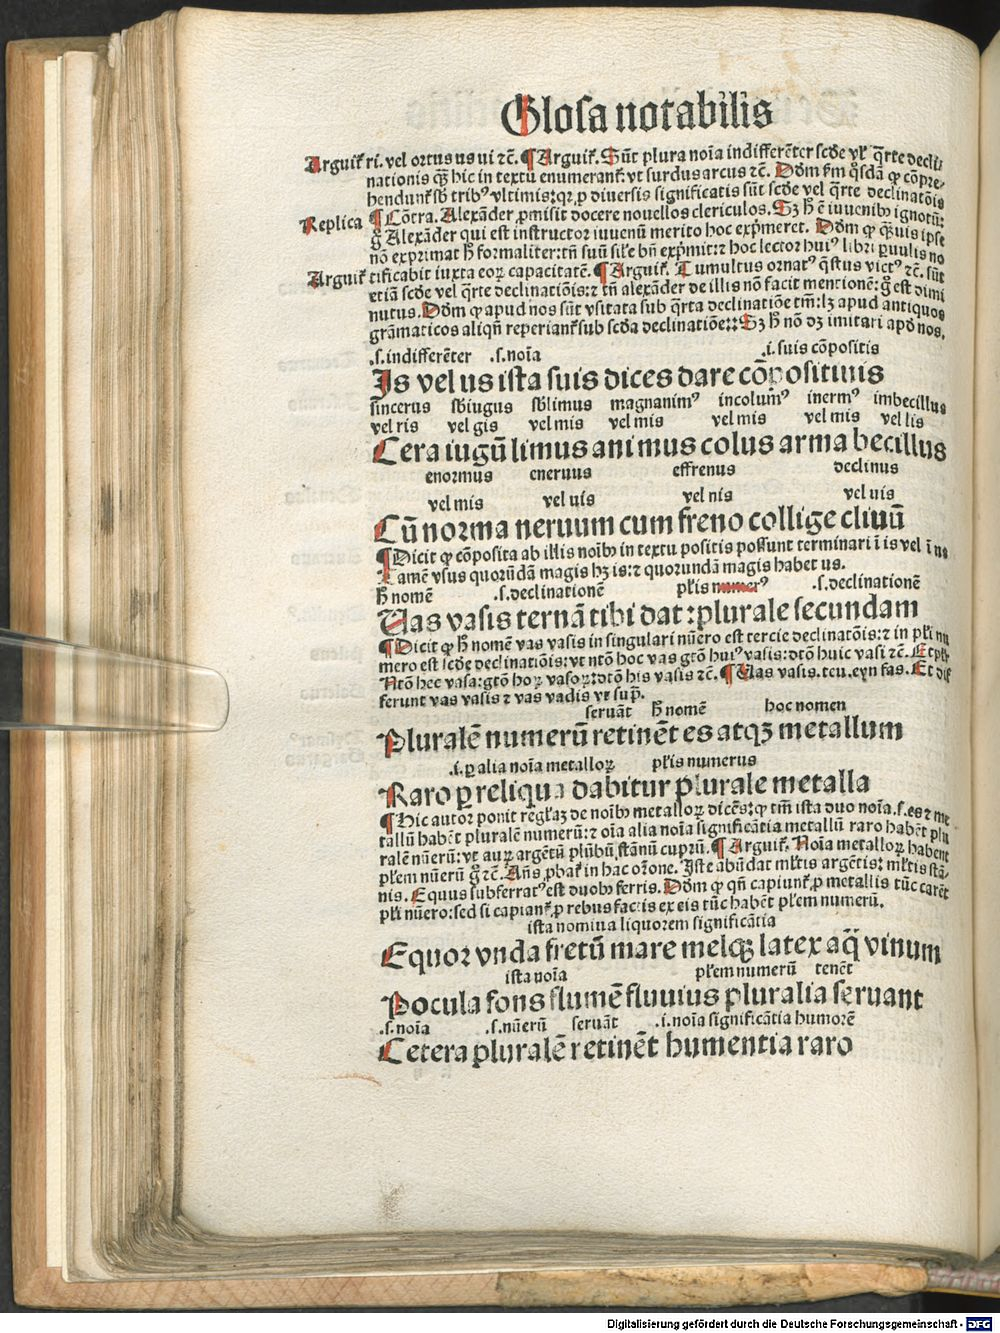 Glosa notabilis
Arguit̃ ri. vel ortus us ui ꝛc̃. ¶ Arguit̃. Sũt plura noĩa indifferẽter scđe vl̃ q̃rte decli-
nationis quę hic in textu enumerant̃: vt surdus arcus ꝛc̃. Dōm ꝓm q̃sdã ꝙ cõpre-
hendunt̃ sb̃ tribꝰ vltimis: qꝛ ꝓ diuersis significatis sũt scđe vel q̃rte declinatõis
Replica ¶ Cõtra. Alexãder ꝓmisit docere nouellos clericulos. Sꝫ h̃ ẽ iuuenibꝰ ignotũ:
g̃ Alexãder qui est instructor iuuenũ merito hoc exp̃meret. Dōm ꝙ q̃uis ipse
nõ exprimat h̃ formaliter: tñ suũ sil̃e bñ exp̃mit: ꝛ hoc lector huiꝰ libri ꝑuulis no
Arguit̃ tificabit iuxta eoꝝ capacitatẽ. ¶ Arguit̃. Tumultus ornatꝰ q̃stus victꝰ ꝛc̃. sũt
etiã scđe vel q̃rte declinatiõis: ꝛ tñ alexãder de illis nõ facit mentionẽ: g̃ est dimi
nutus. Dōm ꝙ apud nos sũt vsitata sub q̃rta declinatiõe tm̃: lꝫ apud antiquos
grãmaticos aliqñ reperiant̃ sub scđa declinatiõe:: Sꝫ h̃ nõ dꝫ imitari apđ nos.
.s. indifferẽter .s. noĩa .i. suis cõpositis
Is vel us ista suis dices dare cõpositiuis
sincerus sb̃iugus sb̃limus magnanimꝰ incolumꝰ inermꝰ imbecillus
vel ris vel gis vel mis vel mis vel mis vel mis vel lis
Cera iugũ limus animus colus arma becillus
enormus eneruus effrenus declinus
vel mis vel uis vel nis vel uis
Cũ norma neruum cum freno collige cliuũ
¶ Dicit ꝙ cõposita ab illis noĩbꝰ in textu positis possunt terminari ĩ is vel ĩ us
Tamẽ vsus quorũdã magis hꝫ is: ꝛ quorundã magis habet us.
h̃ nomẽ .s. declinationẽ pl̃is numerꝰ .s. declinationẽ
Uas vasis ternã tibi dat: plurale secundam
¶ Dicit ꝙ h̃ nomẽ vas vasis in singulari nũero est tercie declinatõis: ꝛ in pl̃i nu
mero est scđe declinatiõis: vt ntõ hoc vas gtõ huiꝰ vasis: dtõ huic vasi ꝛc̃. Et pl̃r
ntõ hec vasa: gtõ hoꝝ vasoꝝ: dtõ his vasis ꝛc̃. ¶ Uas vasis. teu. eyn fas. Et dif
ferunt vas vasis ꝛ vas vadis vt sup̃.
seruãt h̃ nomẽ hoc nomen
Pluralẽ numerũ retinẽt es atqꝫ metallum
.i. ꝑ alia noĩa metalloꝝ pl̃is numerus
Raro ꝑ reliqua dabitur plurale metalla
¶ Hic autor ponit regl̃aꝫ de noĩbꝰ metalloꝝ dicẽs: ꝙ tm̃ ista duo noĩa .s. es ꝛ me
tallũ habẽt pluralẽ numerũ: ꝛ oĩa alia noĩa significãtia metallũ raro habẽt plu
ralẽ nũerũ: vt auꝝ argẽtũ plũbũ stãnũ cuprũ. ¶ Arguit̃. Noĩa metalloꝝ habent
pl̃em nũerũ g̃ ꝛc̃. Añs ꝓbat̃ in hac or̃one. Iste abũdat ml̃tis argẽtis: ml̃tis stã-
nis. Equus subferratꝰ est duobꝰ ferris. Dōm ꝙ qñ capiunt̃ ꝓ metallis tũc carẽt
pl̃i nũero: sed si capiant̃ ꝓ rebus factis ex eis tũc habẽt pl̃em numerũ.
ista nomina liquorem significãtia
Equor vnda fretũ mare melqꝫ latex aq̃ vinum
ista noĩa pl̃em numerũ tenẽt
Pocula fons flumẽ fluuius pluralia seruant
.s. noĩa .s. nũerũ seruãt .i. noĩa significãtia humorẽ
Cetera pluralẽ retinẽt humentia raro
Digitalisierung gefördert durch die Deutsche Forschungsgemeinschaft - DFG